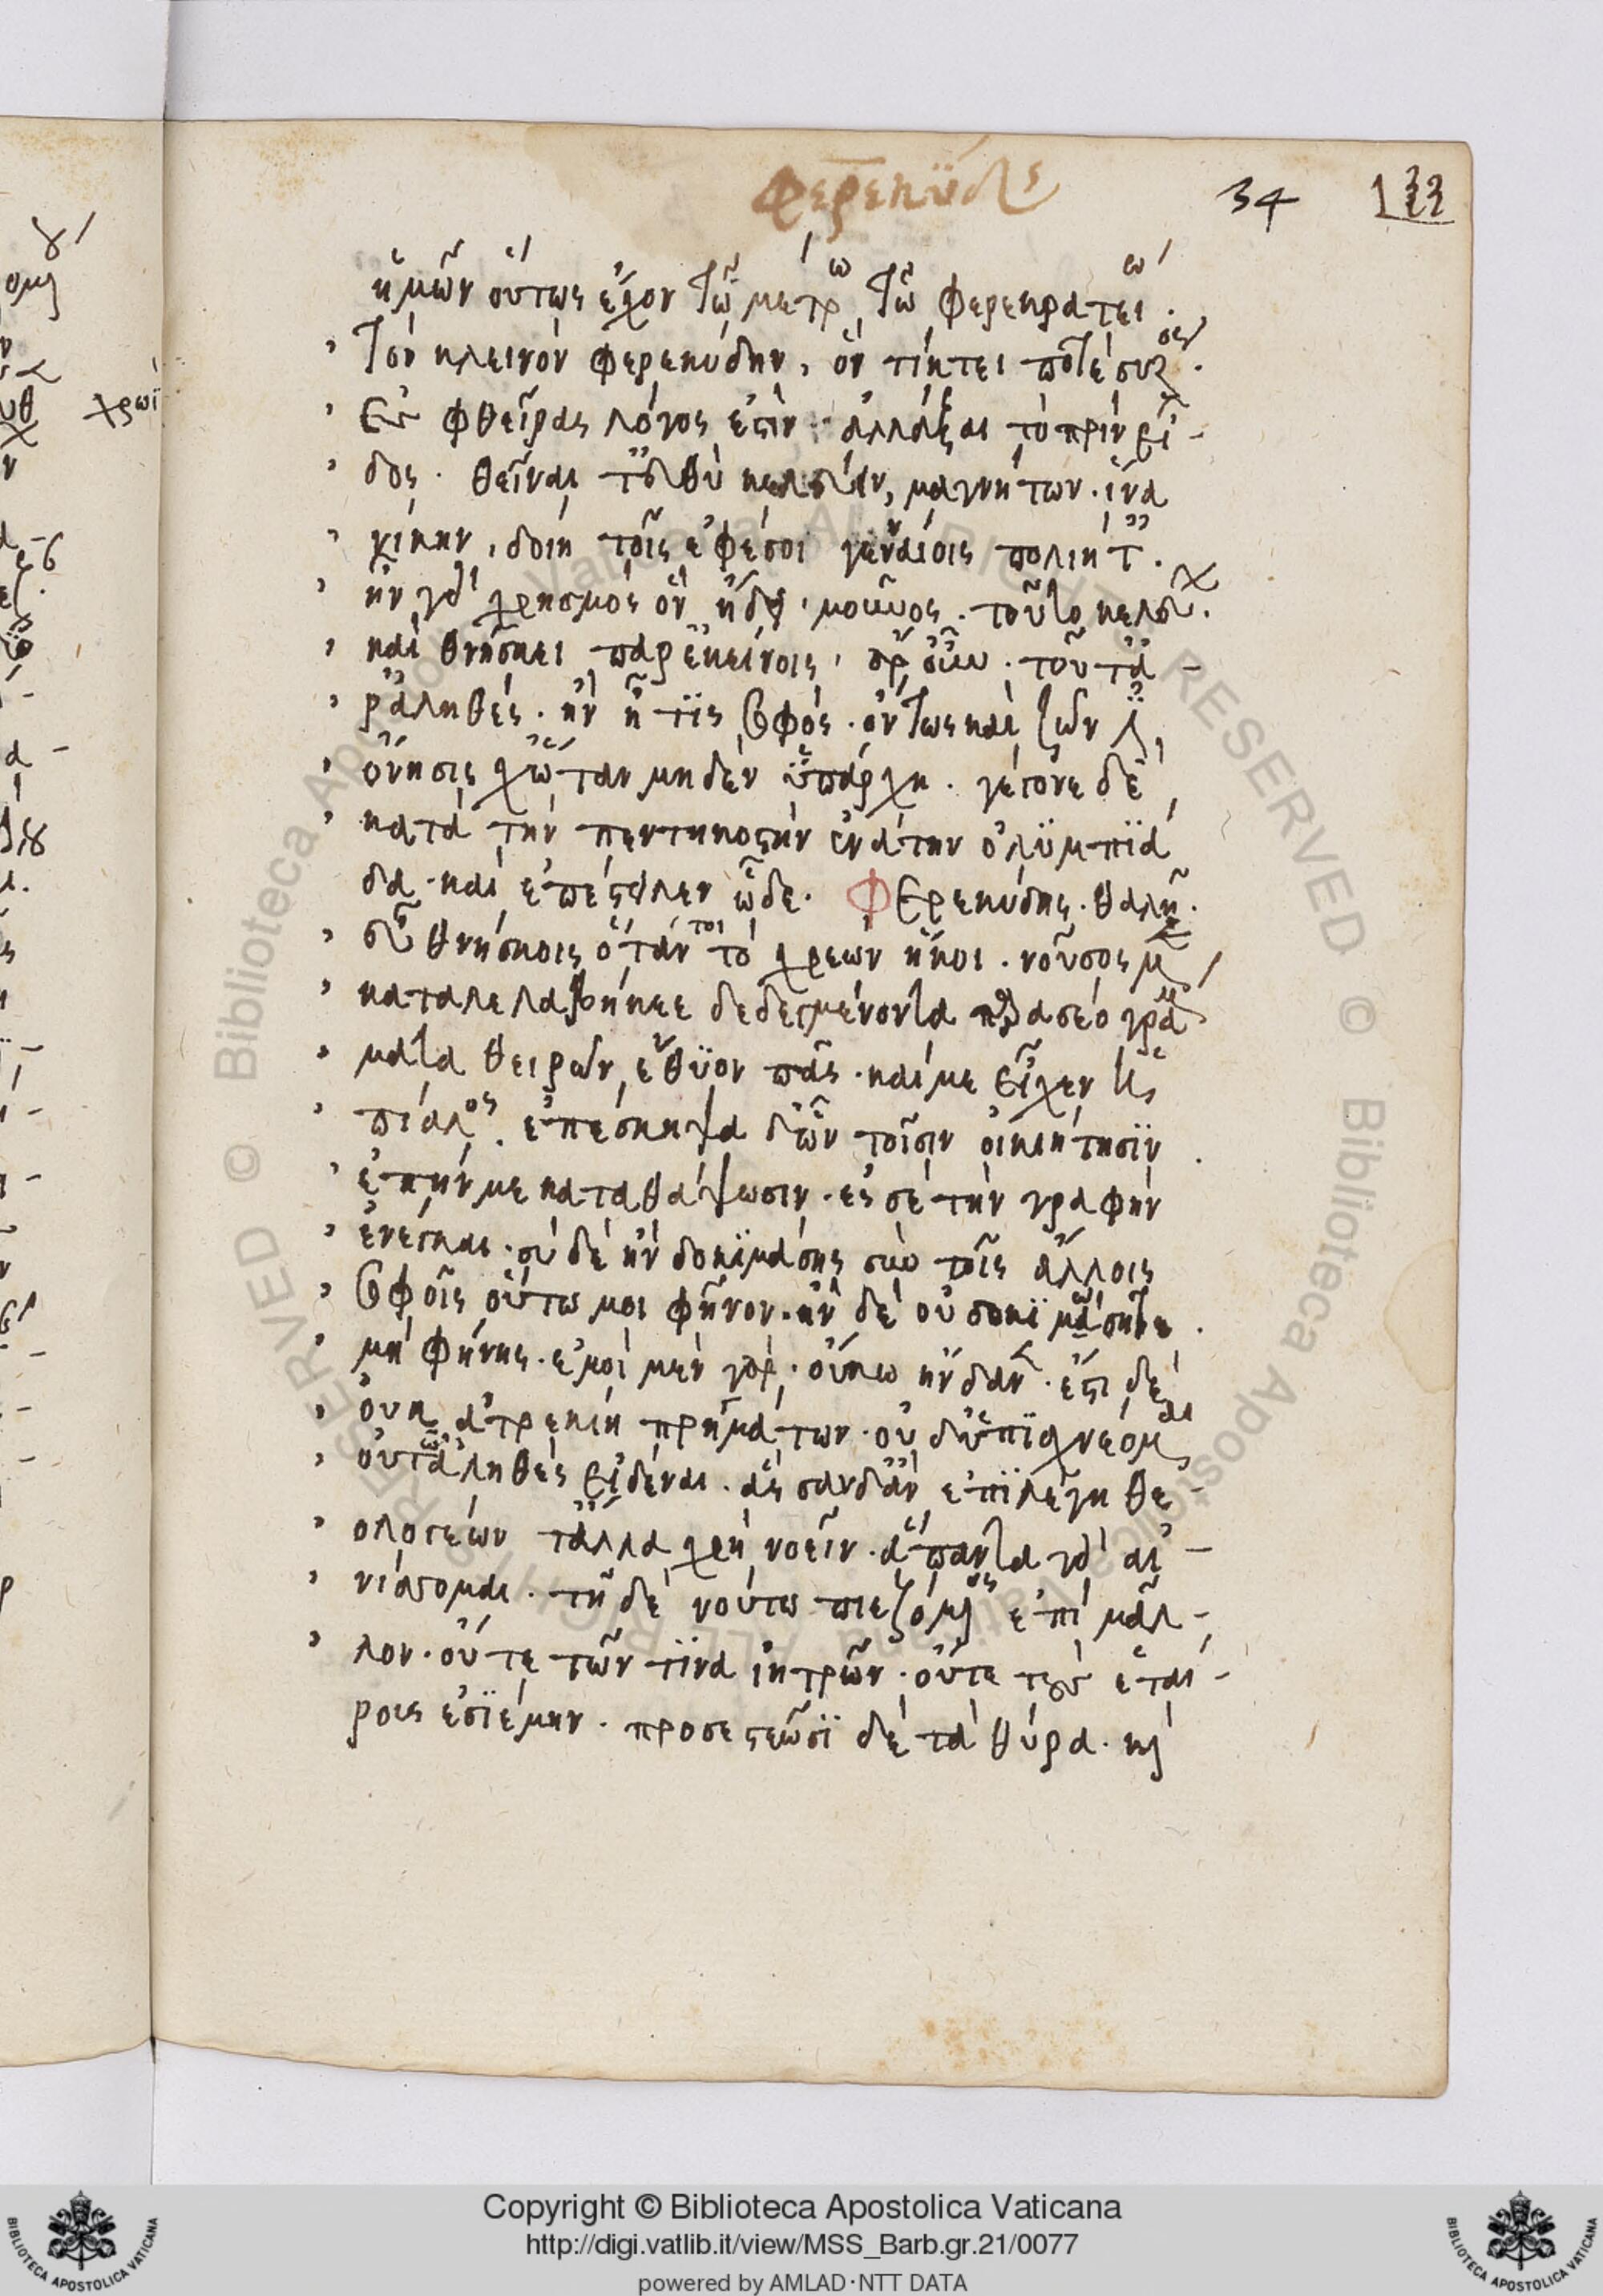 Φερεκύδης
34 133
ἡμῶν οὕτως ἔχον τῷ μέτρῳ τῷ φερεκρατείῳ.
Τὸν κλεινὸν φερεκύδην, ὃν τίκτει ποτὲ σύρος.
Ἐς φθεῖρας λόγος ἐστὶν ἀλλάξαι τὸ πρὶν εἶ-
δος. θεῖναι τ' εὐθὺ κελεύειν, μαγνήτων. ἵνα
νίκην, δοίη τοῖς ἐφέσοι γενναίοις πολιήταις.
ἦν γὰρ χρησμὸς ὃν ᾔδειν, μοῦνος. τοῦτο κελεύων.
καὶ θνήσκει παρ' ἐκείνοις, ἦν οὖν τοῦτ' ἄ-
ρ' ἀληθές. ἢν ᾖ τις σοφός. ὄντως καὶ ζῶν
ὄνησις χ' ὥταν μηδὲν ὑπάρχη. γέγονε δὲ
κατὰ τὴν πεντηκοστὴν ἐνάτην ὀλυμπιά
δα. καὶ ἐπέστειλεν ὧδε. Φερεκύδης. θαλῇ.
εὖ θνήσκοις ὅταν τοι τὸ χρεὼν ἥκοι. νοῦσος μὲν
καταλελαβήκεε δεδεγμένον τὰ παρὰ σέο γράμ
ματα φθειρῶν ἔθυον πᾶς. καί με εἶχεν ἠ
πίαλος. ἐπέσκηψα δ' ὦν τοῖσιν οἰκιήτησιν.
ἐπήν με καταθάψωσιν. ἐς σὲ τὴν γραφὴν
ἐνεῖκαι. σὺ δὲ ἢν δοκιμάσης σὺν τοῖς ἄλλοις
σοφοῖς οὕτω μοι φῆνον. ἢν δὲ οὐ δοκιμάσητε.
μὴ φήνης. ἐμοὶ μὲν γὰρ. οὔκω ἥνδαν. ἔστι δὲ
οὐκ ἀτρεκίη πρημάτων. οὐδ' ὑπισχνέομαι
οὐτὠληθὲς εἰδέναι. ἅσσα δ' ἂν ἐπιλέγη θε-
ολογέων τἄλλα χρὴ νοεῖν. ἅπαντα γὰρ αἰ-
νίσσομαι. τῇ δὲ νούσω πιεζόμενος ἐπὶ μᾶλ-
λον. οὔτε τῶν τινα ἰητρῶν. οὔτε τοὺς ἑταί-
ροις ἐσιέμην. προσεστεῶσι δὲ τᾷ θύρα. καὶ
Copyright © Biblioteca Apostolica Vaticana
http://digi.vatlib.it/view/MSS_Barb.gr.21/0077
powered by AMLAD·NTT DATA